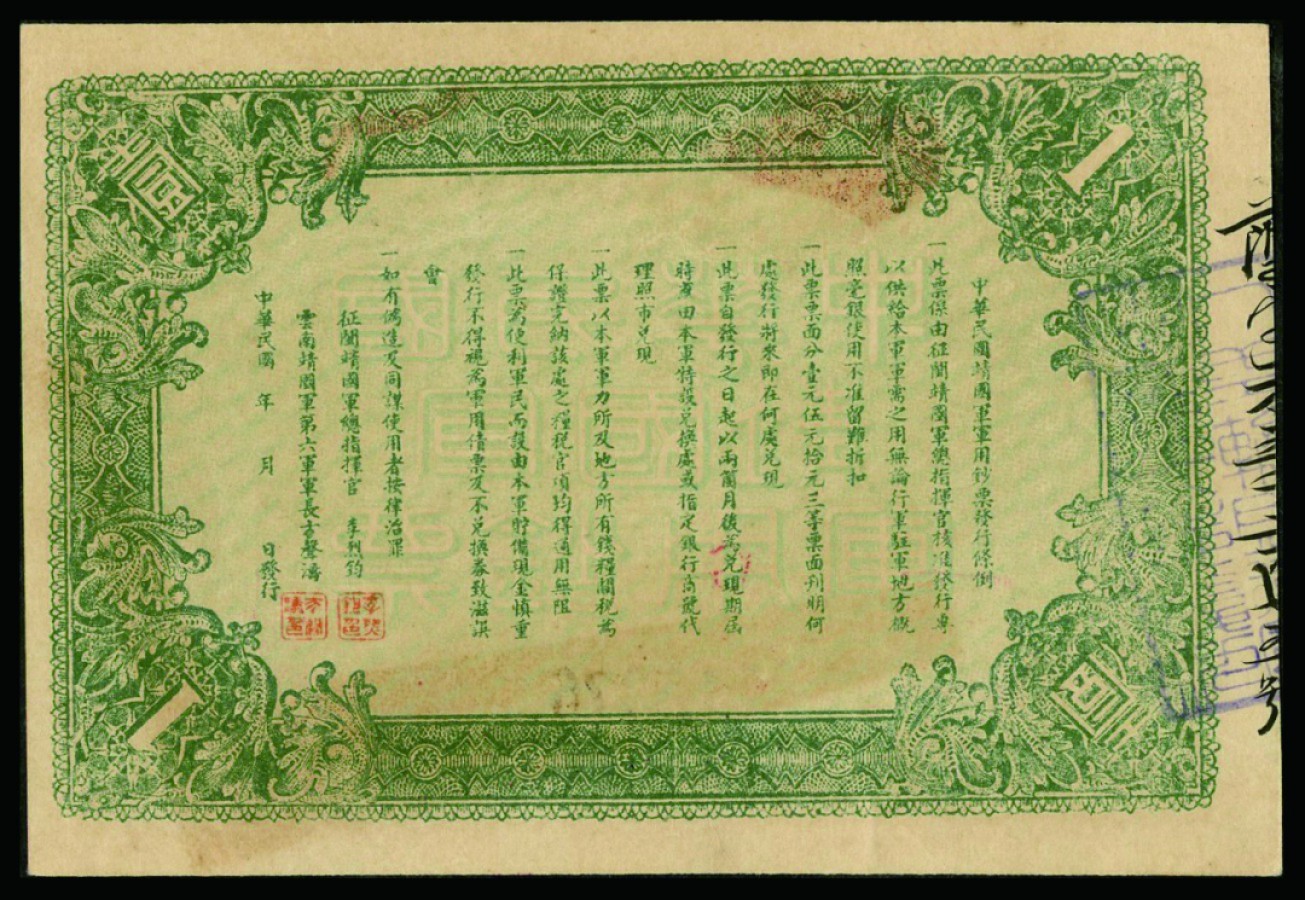 中華民國靖國軍軍用鈔票發行條例
一此票係由征閩靖國軍總指揮官核准發行專
以供給本軍軍需之用無論行軍駐軍地方概
照毫銀使用不准留難折扣
一此票票面分壹元伍元拾元三等票面刋明何
處發行將來即在何處兌現
一此票自發行之日起以兩個月後為兌現期屆
時應由本軍特設兌換處或指定銀行商號代
理照市兌現
一此票以本軍軍力所及地方所有錢糧關稅為
保證完納該處之糧稅官項均得通用無阻
一此票為便利軍民而設由本軍貯備現金慎重
發行不得視為軍用債票及不兌換券致滋誤
會
一如有偽造及同謀使用者按律治罪
征閩靖國軍總指揮官 李烈鈞
雲南靖國軍第六軍軍長方聲濤
中華民國 年 月 日發行
1
圓
壹
圓
1
中華民國
靖國軍
軍用鈔票